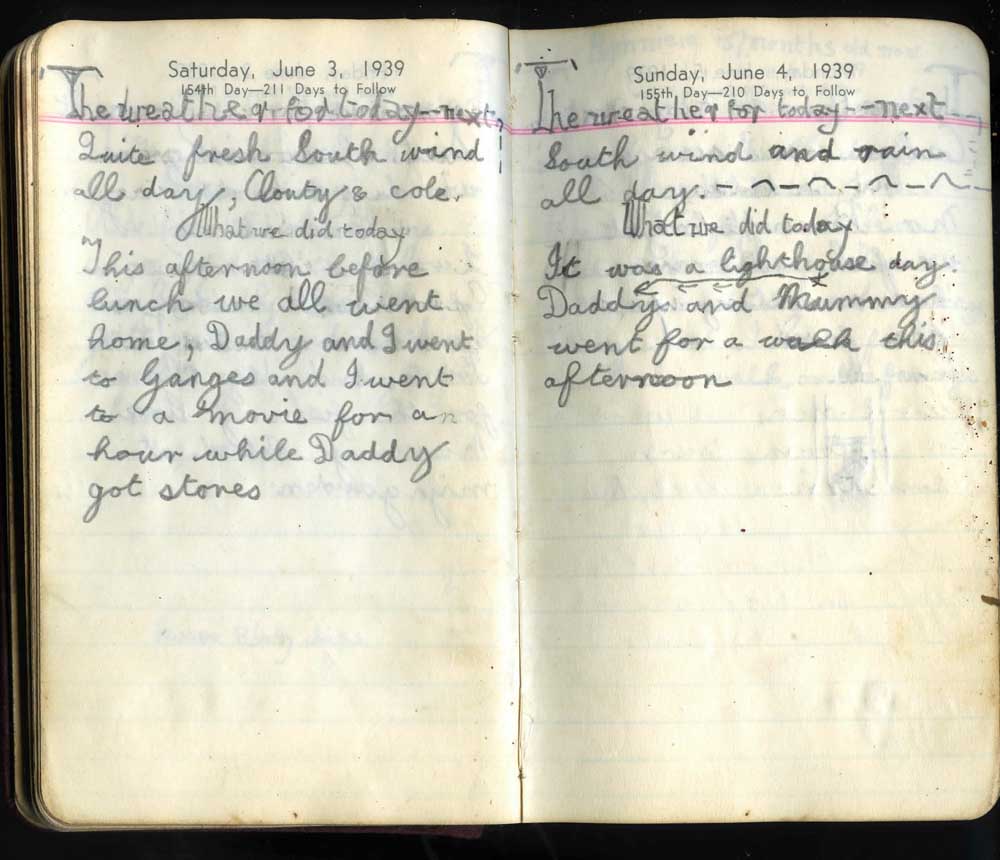 Saturday, June 3, 1939
154th Day—211 Days to Follow
The weather for today--next
Quite fresh South wind
all day, Clouty & cole.
What we did today
This afternoon before
lunch we all went
home, Daddy and I went
to Ganges and I went
to a movie for an
hour while Daddy
got stores
Sunday, June 4, 1939
155th, Day—210 Days to Follow
The weather for today--next
South wind and rain
all day.
What we did today
It was a lighthouse day.
Daddy and Mummy
went for a walk this
afternoon